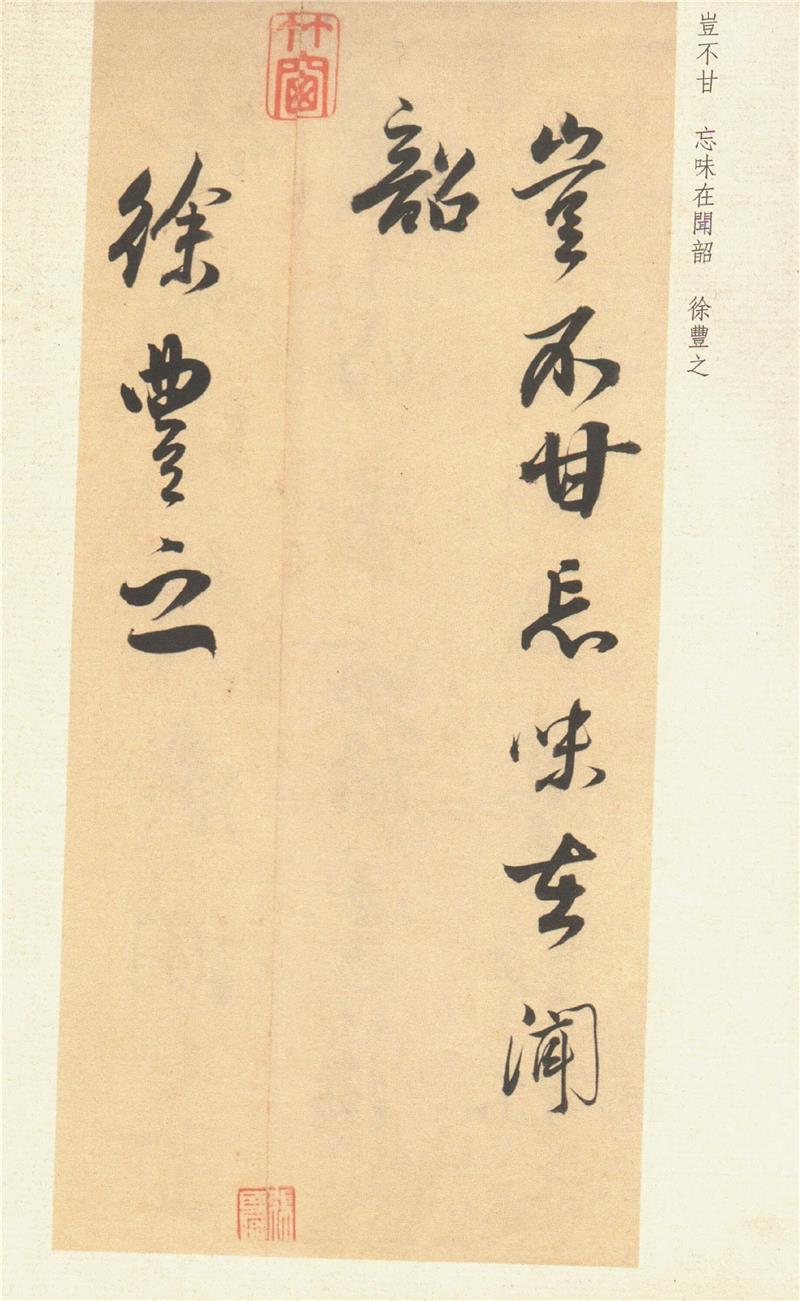 豈不甘 忘味在聞韶 徐豐之
豈不甘忘味在聞
韶
徐豐之
竹窗